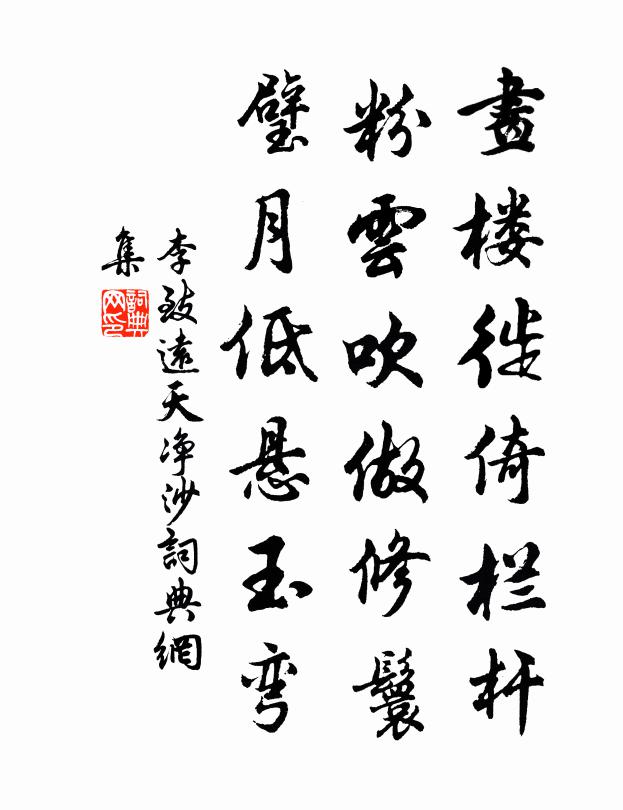 畫楼徙倚栏杆
粉雲吹做修鬟
璧月低悬玉弯
李致遠天净沙詞典網
集
詞典网印